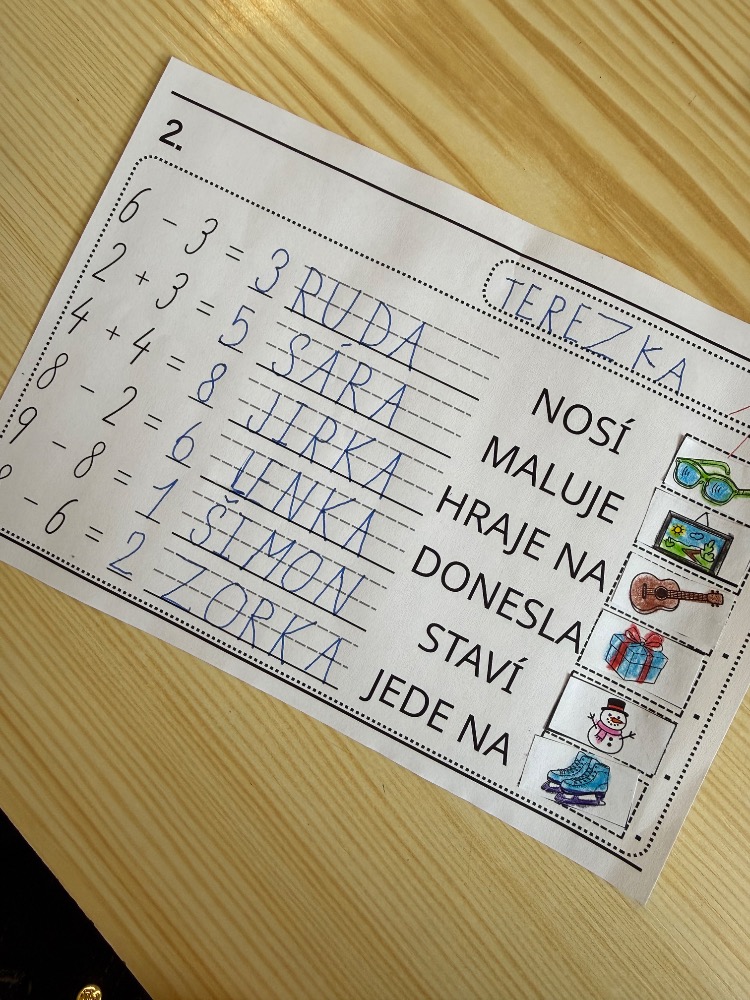 2.
TEREZKA
6 - 3 = 3 RUDA NOSÍ
2 + 3 = 5 SÁRA MALUJE
4 + 4 = 8 JIRKA HRAJE NA .
8 - 2 = 6 LENKA DONESLA .
9 - 8 = 1 ŠIMON STAVÍ .
- 6 = 2 ZORKA JEDE NA .